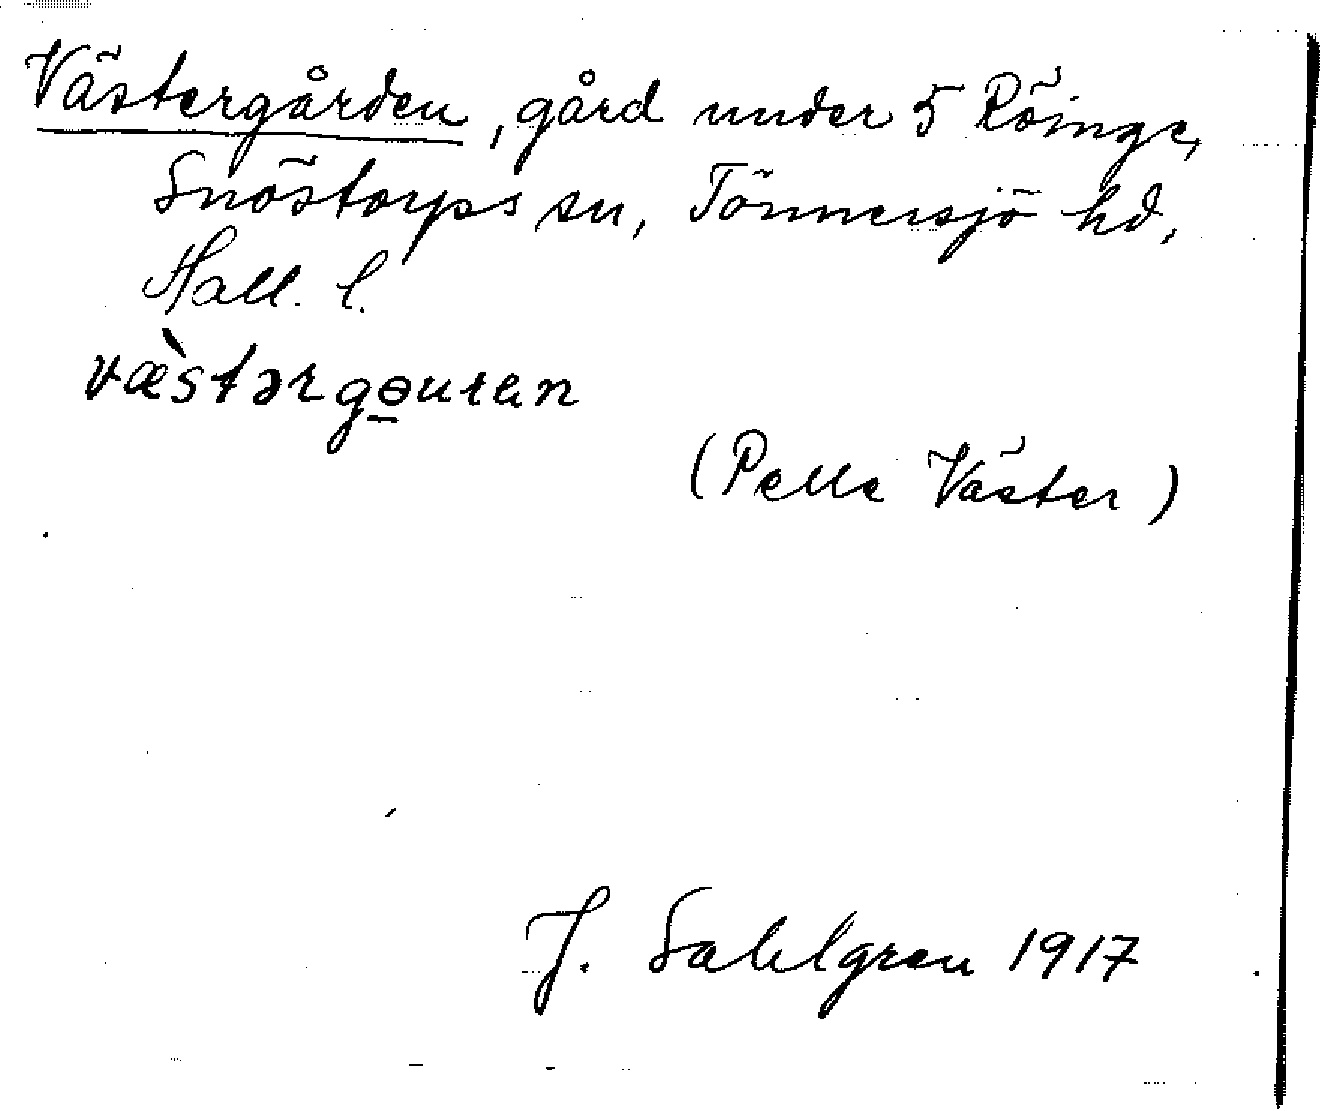 Västergården, gård under 5 Röinge,
Snöstorps sn, Tönnersjö hd,
Hall. l.
væ̀stərgɵ̠uran
(Pelle Väster)
J. Sahlgren 1917